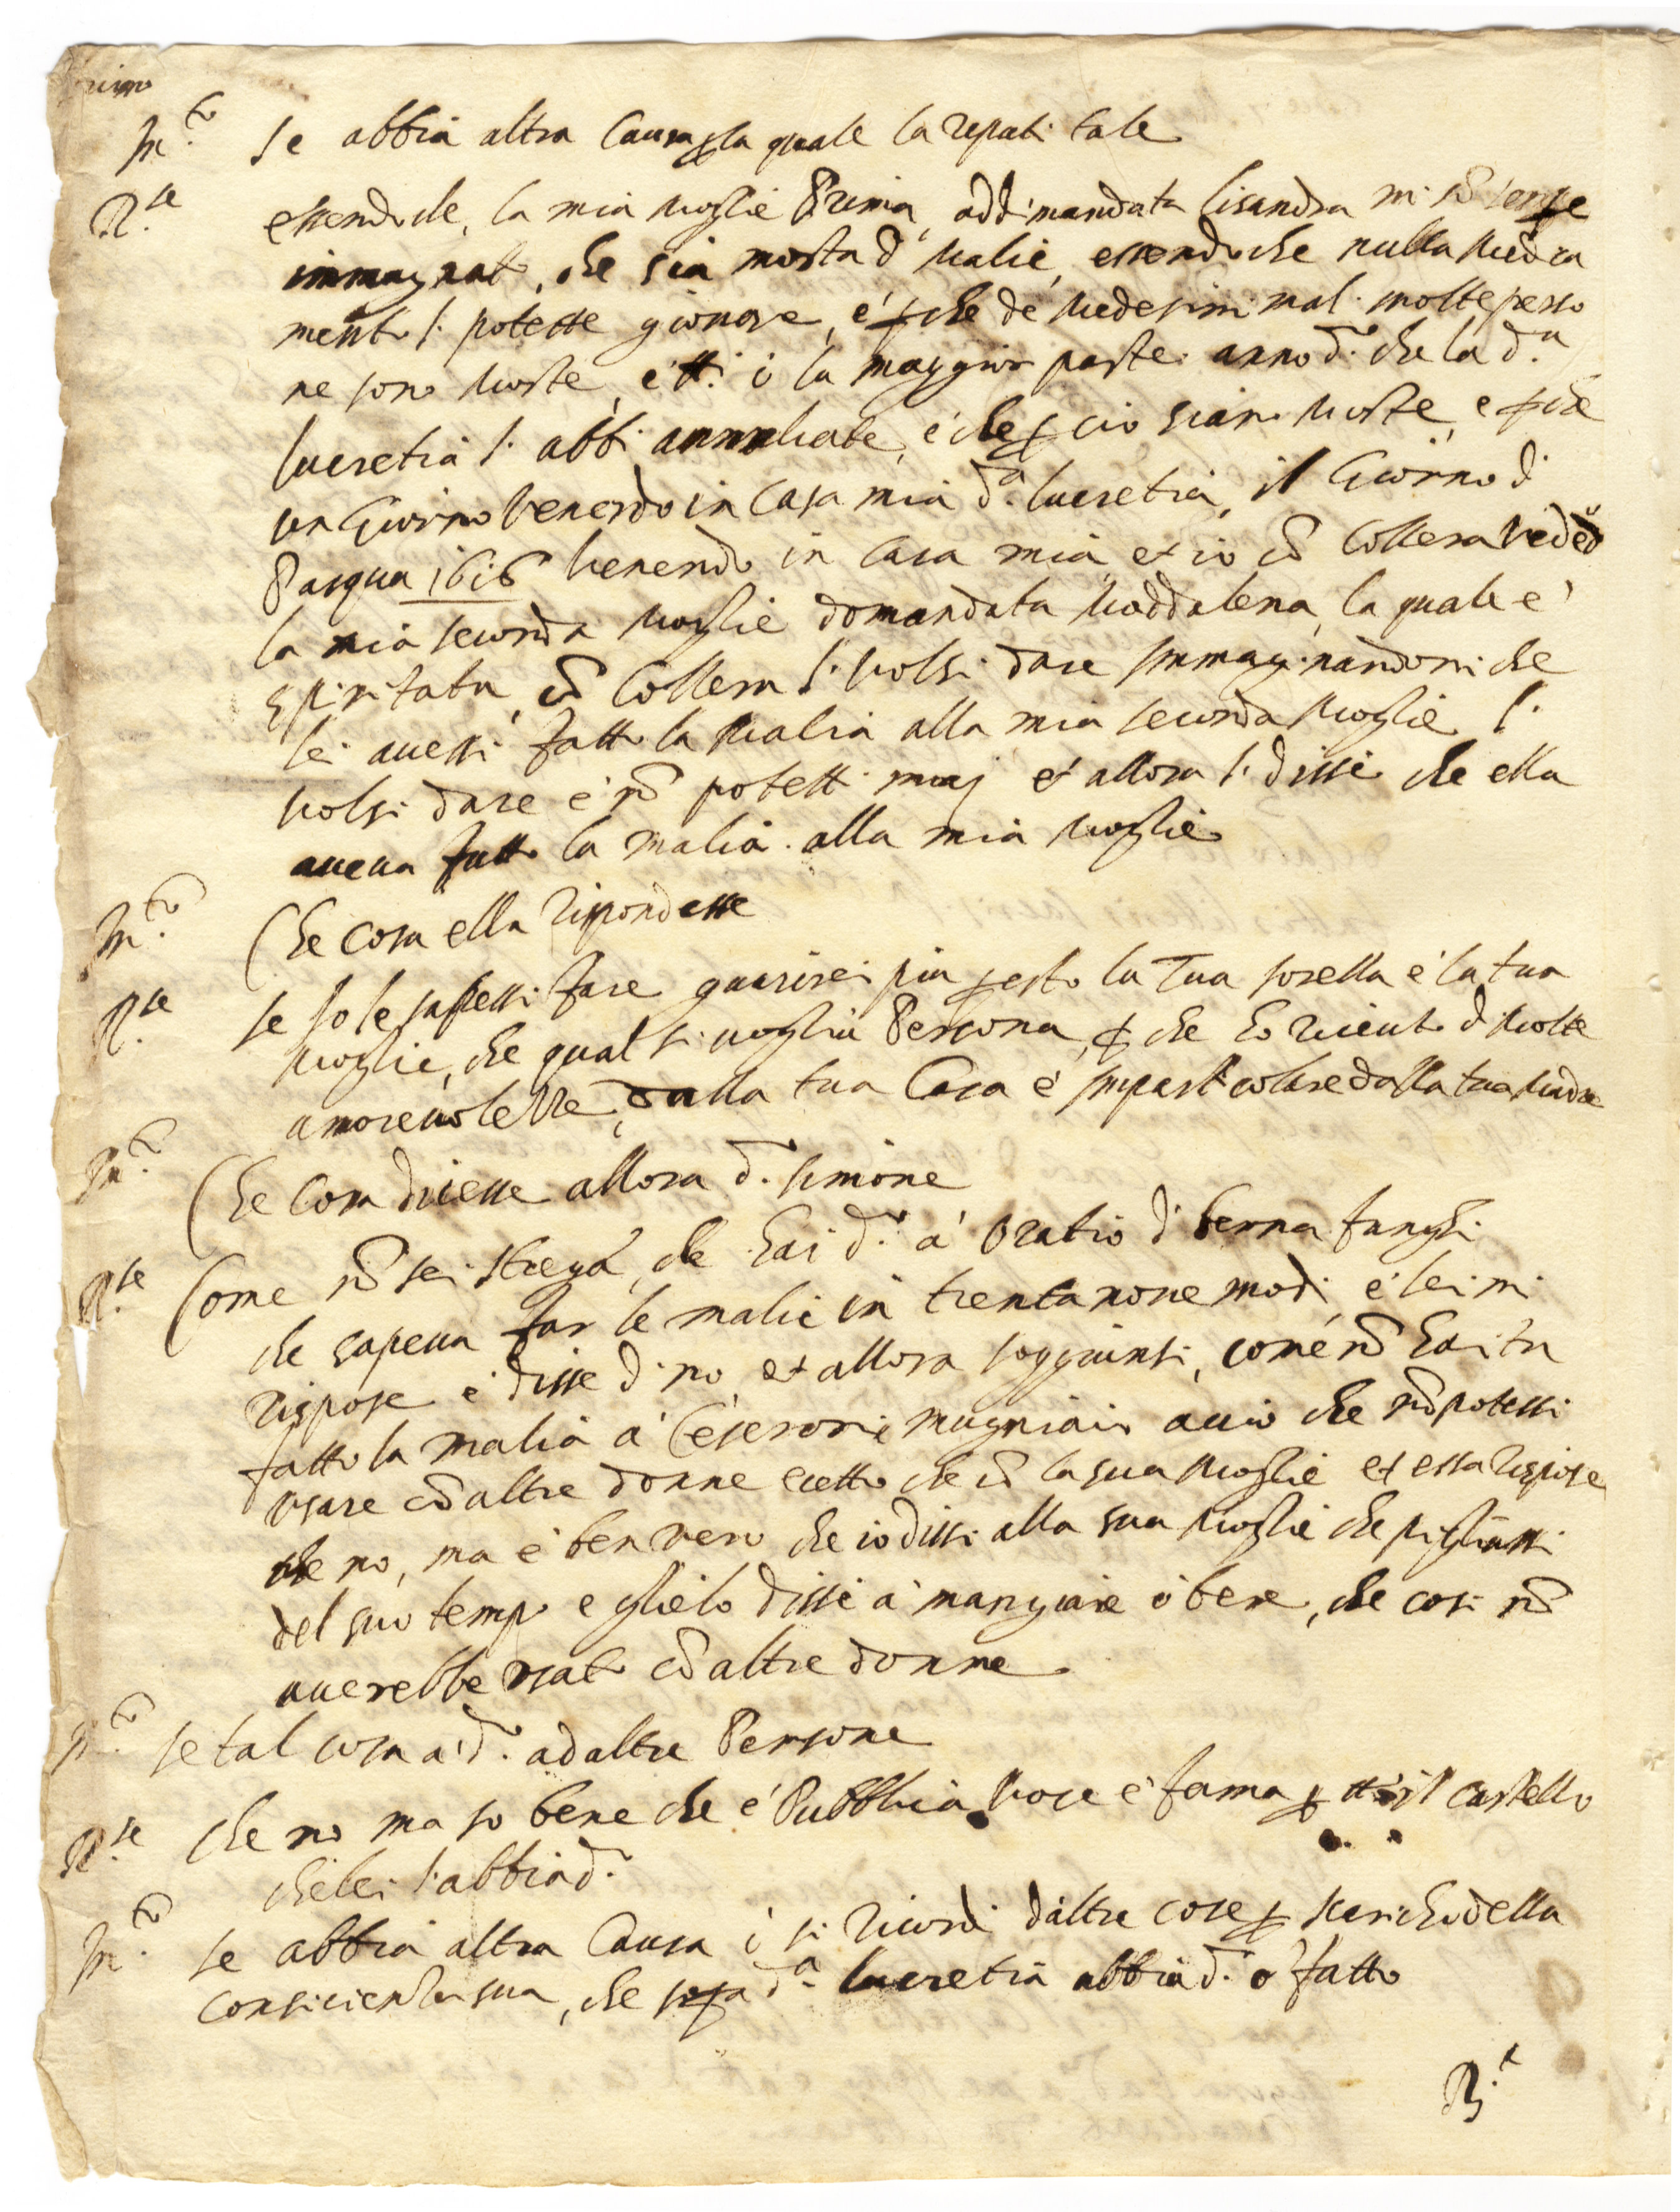 Primo
Int.to se abbia altra Causa p la quale la reputi tale
R.se essendo che, la mia moglie Prima, addimandata lisandra mi sō sempre
immagnato, che sia morta d malie, essendo che nulla medica
mento li potette giovare, é p che de medesimi mali molte perso
ne sono morte, é tt.i ó la maggior parte anno d.to che la d.a
lucretia li abbi ammaliate, é che p ciò siano morte, e p che
un Giorno Venendo in Casa mia d.a lucretia, il Giorno d
Pasqua 1616 Venendo in Casa mia et io cō Collera veded
la mia seconda moglie domandata Maddalena, la quale e'
spiritata, cō Collera li volsi dare Immaginandomi che
lei avessi fatto la Malia alla mia seconda Moglie li
volsi dare é nō potetti maj et allora li dissi che ella
aveva fatto la malia alla mia moglie
Int.to Che cosa ella rispondesse
R.se se Io le sapessi fare guarirei piu presto la Tua sorella é la tua
moglie, che qual si voglia Persona, p che ho riceuto d molte
amorevolezze, dalla tua Casa é Inparticolare dalla tua Madre
Int.to Che Cosa dicesse allora d.to simone
R.se Come nō sei strega, che hai d.to á Oratio d berna funghi
che sapeva far le malie in trentanove modi, é lei mi
rispose é disse d no, et allora soggiunsi, come nō hai tu
fatto la malia á Ceserone mugniaio acciò che nō potessi
usare cō altre donne ecetto che cō la sua moglie et essa rispose
che no, ma é ben vero che io dissi alla sua moglie che pigliassi
del suo tempo e glielo dessi á mangiare ó bere, che cosi nō
averebbe usato cō altre donne
Int.to se tal cosa á d.to ad altre Persone
R.se che no ma so bene che é Pubblicia voce é fama p tt.o il castello
che lei l'abbia d.to
Int.to se abbia altra Causa ó si ricordi d'altre cose p scaricho della
consicientia sua, che d.a lucretia abbia d.to o' fatto
R.e